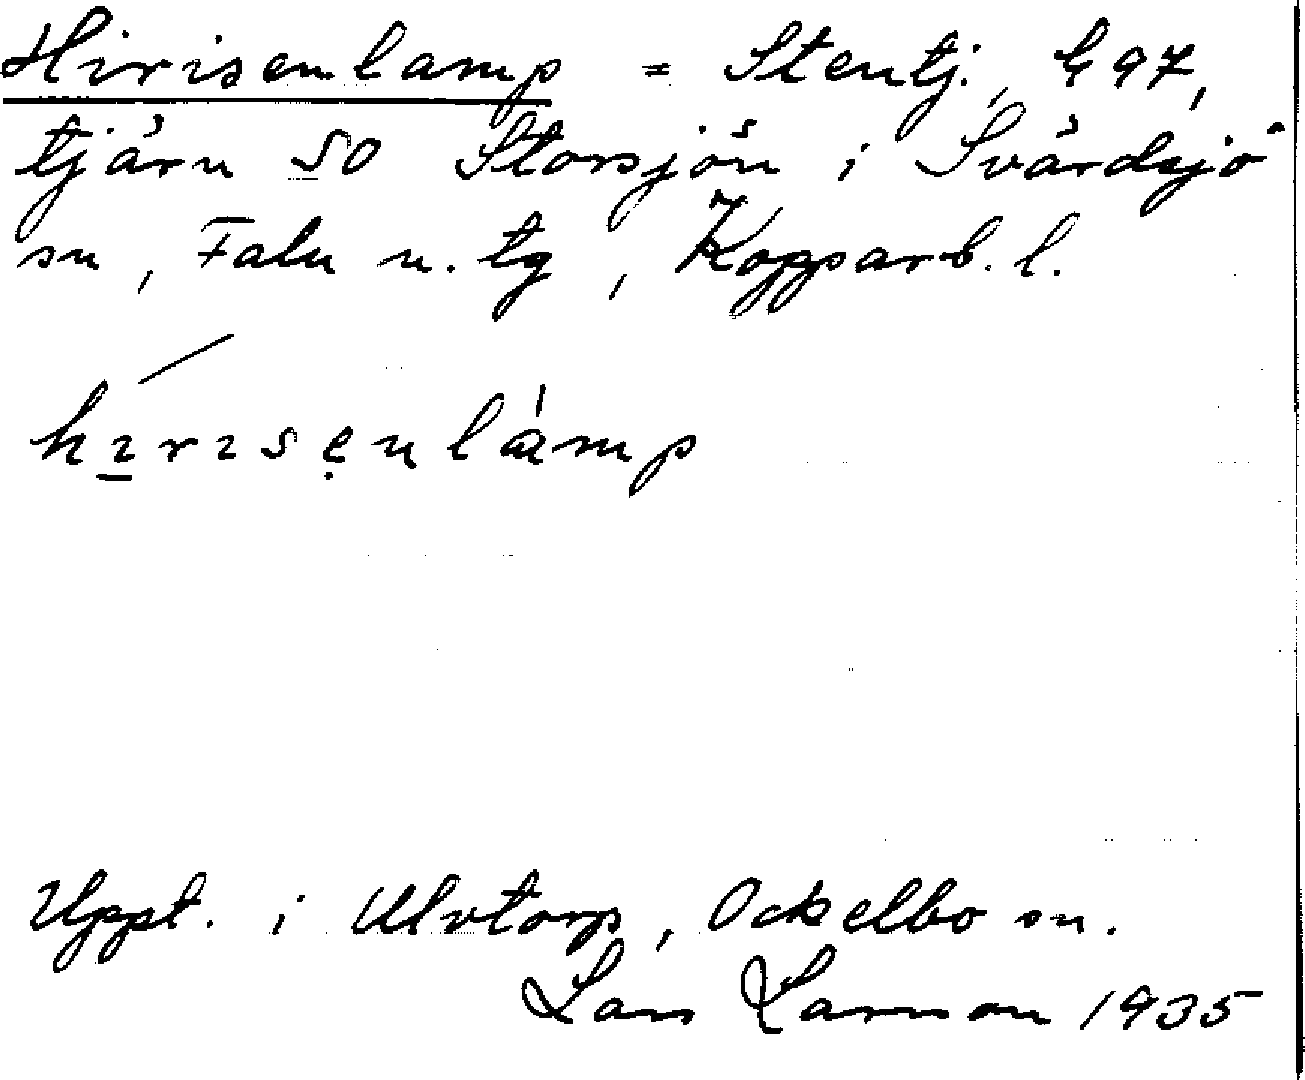 Hirisenlamp = Stentj., G 97,
tjärn SO Storsjön i Svärdsjö
sn, Falu n. tg, Kopparb. l.
hırısẹnlámp
Uppt. i Ulvtorp, Ockelbo sn.
Lars Larsson 1935